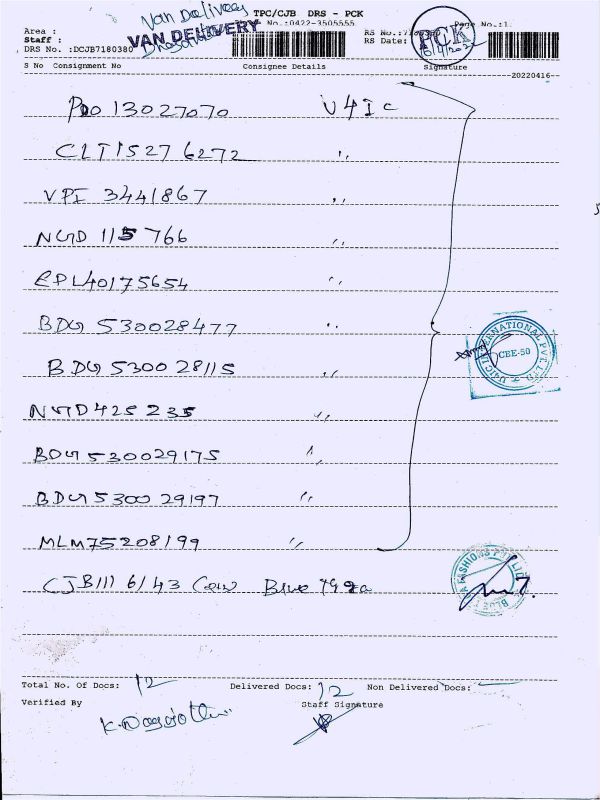 Van Delivery TPC/CJB DRS - PCK
Area : VAN DELIVERY No.:0422-3505555 Page No.:1
Staff : RS No.:
DRS No. :DCJB7180380 RS Date: PCK
S No Consignment No Consignee Details Signature
20220416
PDO 13027070 U4IC
CLT15276272 ,,
VPI 3441867 ,,
NGD 115766 ,,
EPL40175654 ,,
BDG 530028477 ,,
BDG 530028115 ,,
U4IC INTERNATIONAL PVT LTD CBE-50
NGD 425235 ,,
BDG 530029175 ,,
BDG 530029197 ,,
MLM75208199 ,,
CJB111 6143 Blue
BLUE FASHIONS PVT LTD
Total No. Of Docs: 12 Delivered Docs: 12 Non Delivered Docs: —
Verified By Staff Signature